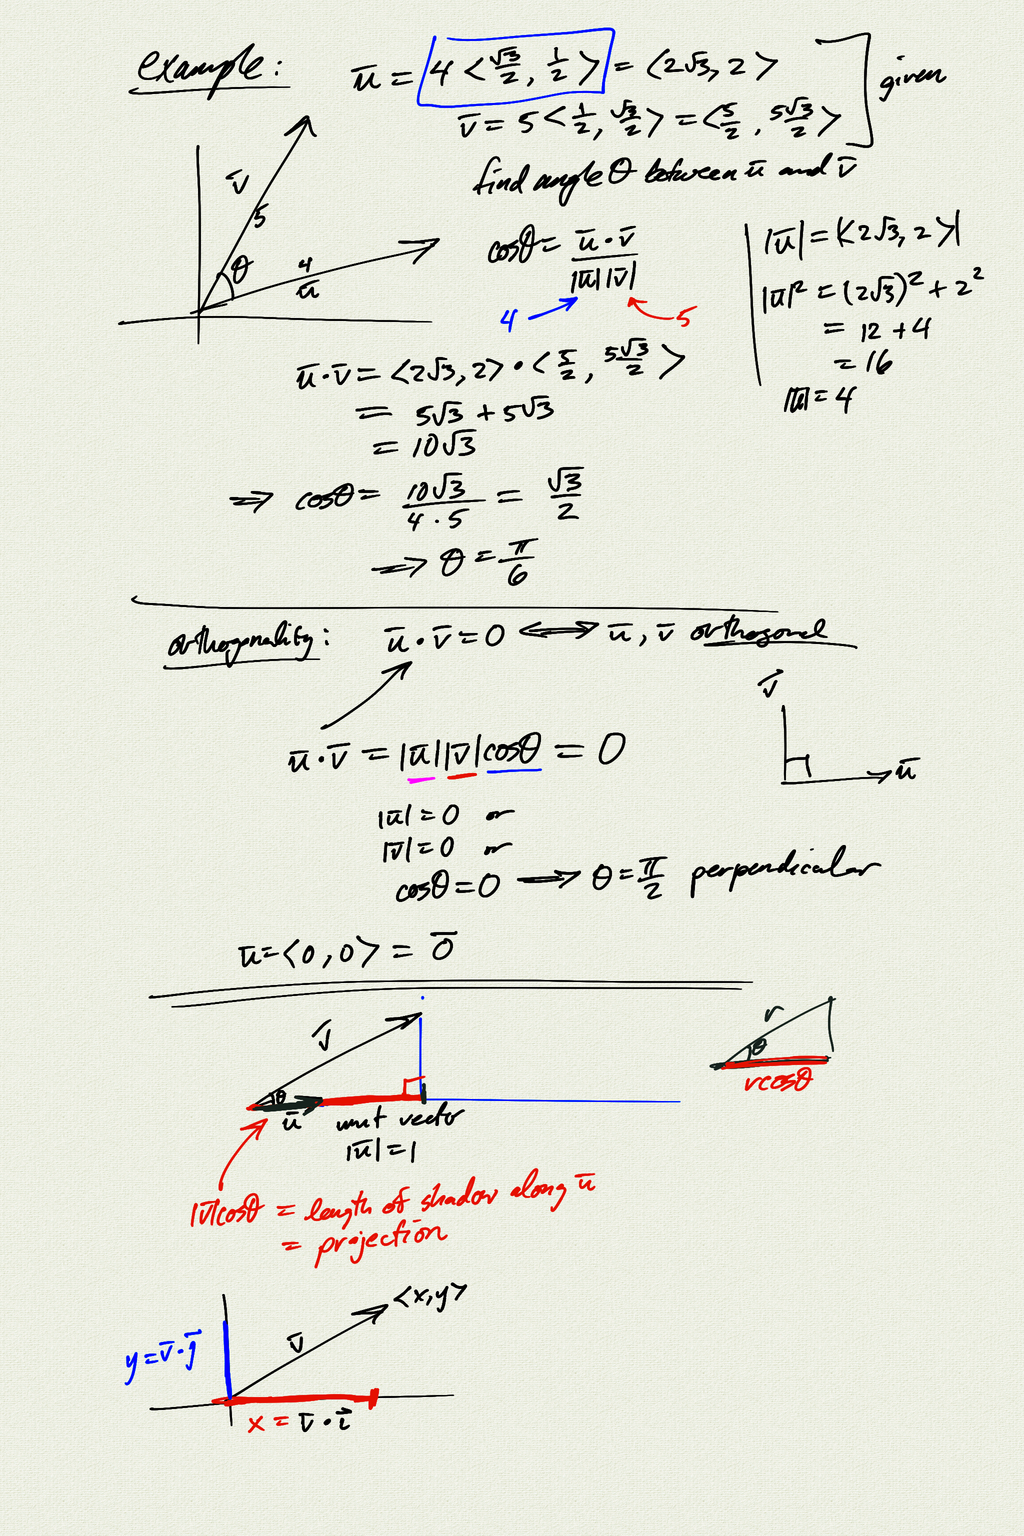 example: ū = 4 <√3/2, 1/2> = <2√3, 2>
v̄ = 5 <1/2, √3/2> = <5/2, 5√3/2>
given
find angle θ between ū and v̄
v̄
5
θ
4
ū
cosθ = ū·v̄ / |ū||v̄|
4
5
|ū| = |<2√3, 2>|
|ū|² = (2√3)² + 2²
= 12 + 4
= 16
|ū| = 4
ū·v̄ = <2√3, 2> · <5/2, 5√3/2>
= 5√3 + 5√3
= 10√3
⇒ cosθ = 10√3 / 4·5 = √3/2
⇒ θ = π/6
orthogonality: ū·v̄ = 0 ⟺ ū, v̄ orthogonal
v̄
ū
ū·v̄ = |ū||v̄|cosθ = 0
|ū| = 0 or
|v̄| = 0 or
cosθ = 0 → θ = π/2 perpendicular
ū = <0, 0> = 0̄
v̄
θ
ū
unit vector
|ū| = 1
r
θ
rcosθ
|v̄|cosθ = length of shadow along ū
= projection
<x,y>
v̄
y = v̄·j̄
x = v̄·ī